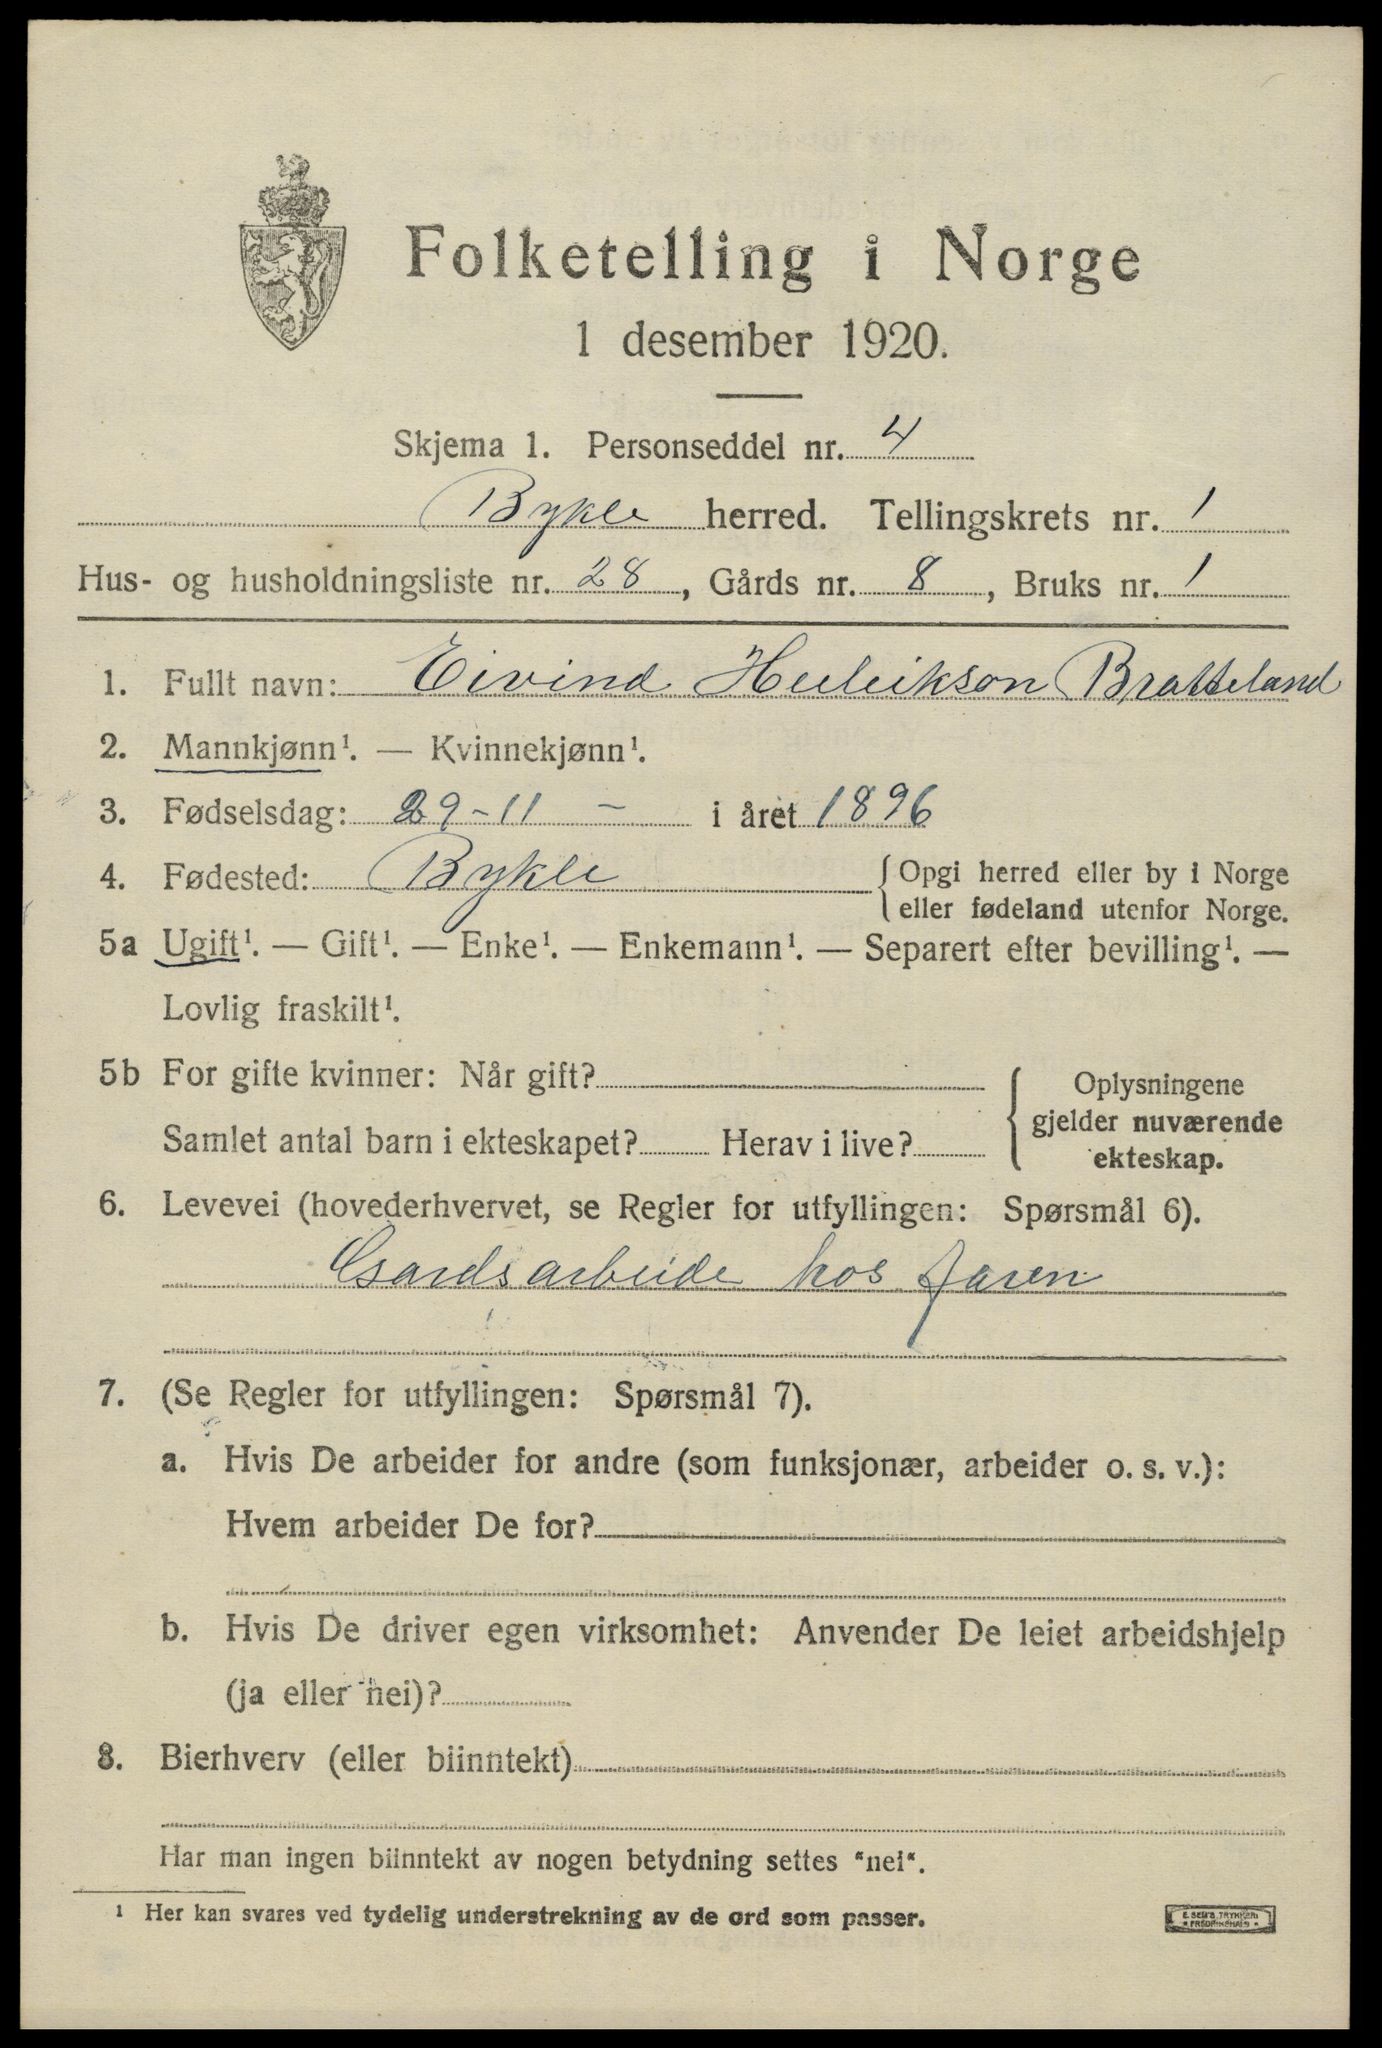 Folketelling i Norge
1 desember 1920.
Skjema 1. Personseddel nr. 4
Bykle herred. Tellingskrets nr. 1
Hus- og husholdningsliste nr. 28, Gårds nr. 8, Bruks nr. 1
1. Fullt navn: Eivind Huleikson Bratteland
2. Mannkjønn¹. — Kvinnekjønn¹.
3. Fødselsdag: 29-11 - i året 1896
4. Fødested: Bykle { Opgi herred eller by i Norge
eller fødeland utenfor Norge.
5a Ugift¹. — Gift¹. — Enke¹. — Enkemann¹. — Separert efter bevilling¹. —
Lovlig fraskilt¹.
5b For gifte kvinner: Når gift?
Samlet antal barn i ekteskapet? Herav i live?
{ Oplysningene
gjelder nuværende
ekteskap.
6. Levevei (hovederhvervet, se Regler for utfyllingen: Spørsmål 6).
Gardsarbeide hos faren
7. (Se Regler for utfyllingen: Spørsmål 7).
a. Hvis De arbeider for andre (som funksjonær, arbeider o. s. v.):
Hvem arbeider De for?
b. Hvis De driver egen virksomhet: Anvender De leiet arbeidshjelp
(ja eller nei)?
8. Bierhverv (eller biinntekt)
Har man ingen biinntekt av nogen betydning settes "nei".
¹ Her kan svares ved tydelig understrekning av de ord som passer.
E. SEM'S TRYKKERI
* FREDRIKSHALD *